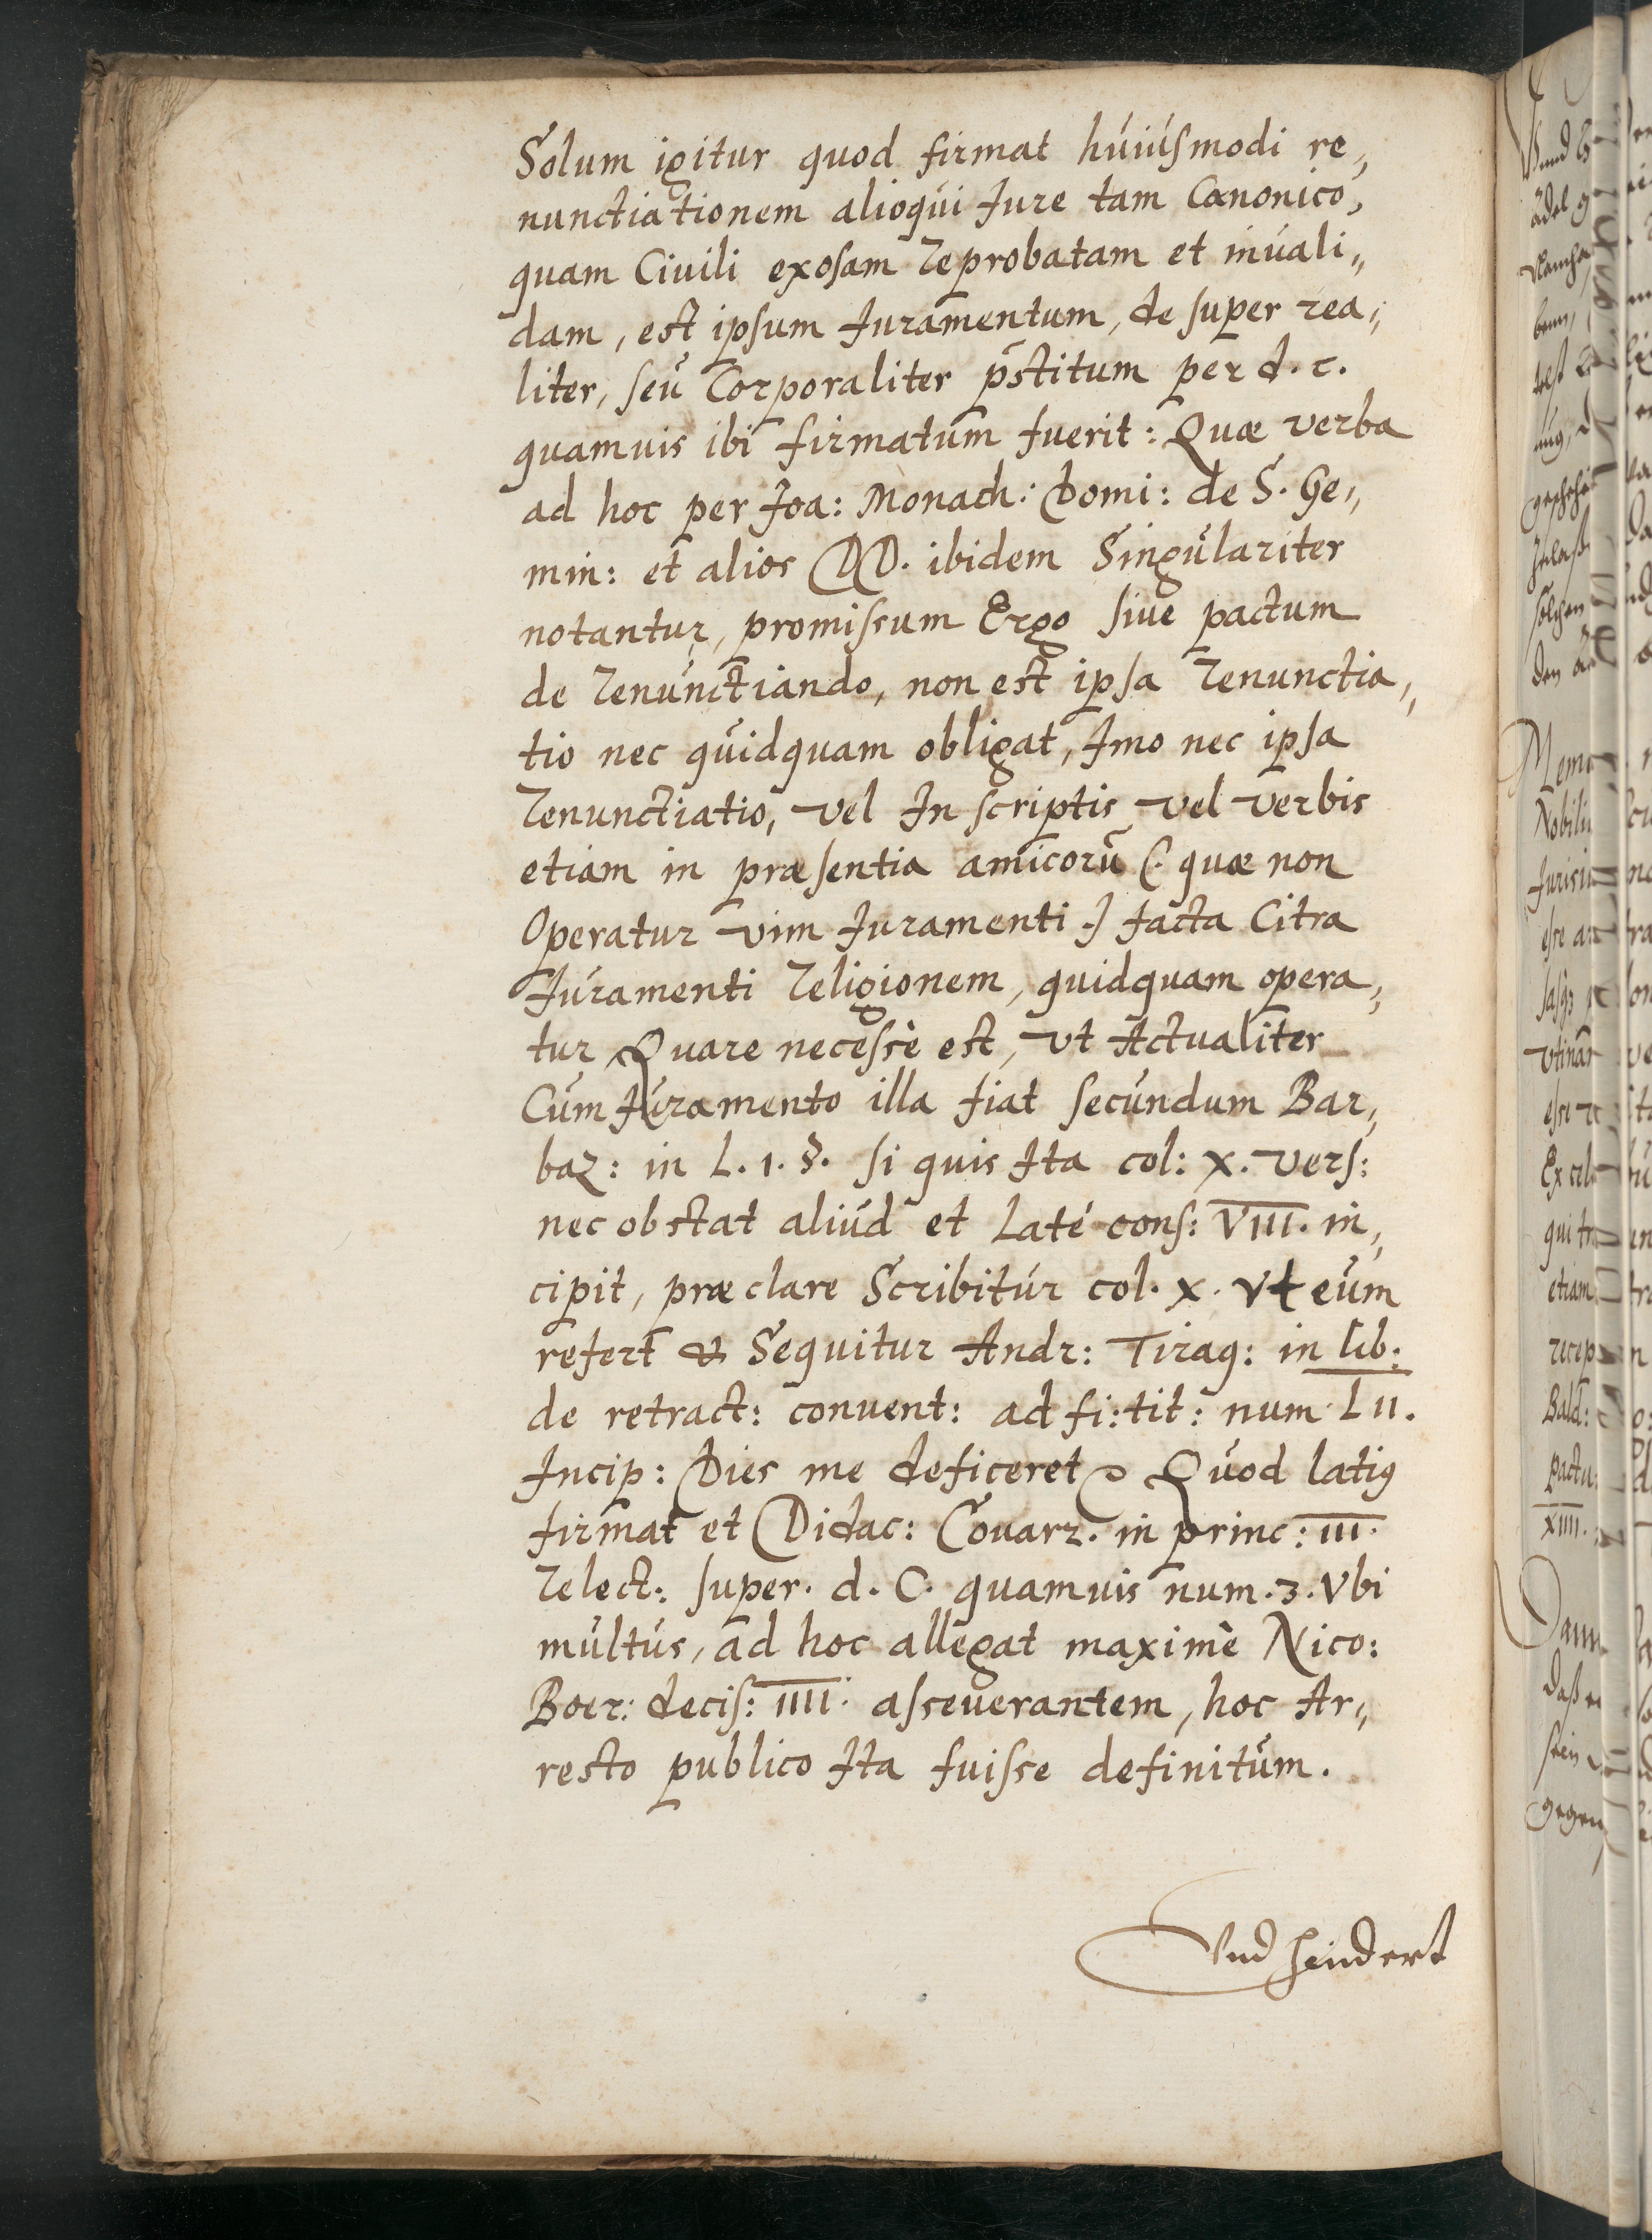 Solum igitur quod firmat húiúsmodi re,,
nunctiationem alioqui Iure tam Canonico,
quam Ciuili exosam reprobatam et inuali,,
dam, est ipsum Iuramentum, de super rea,,
liter, seu Corporaliter p̄stitum per d. c.
quamuis ibi firmatum fuerit: Quæ verba
ad hoc per Ioa: Monach: Domi: de S. Ge,,
min: et alios DD. ibidem Singulariter
notantur, promissum Ergo siue pactum
de renunctiando, non est ipsa renunctia,,
tio nec quidquam obligat, Imo nec ipsa
renunctiatio, vel In scriptis vel verbis
etiam in præsentia amicorū (. quæ non
Operatur vim Iuramenti .) facta Citra
Iuramenti religionem, quidquam opera,,
tur Quare necessè est, vt Actualiter
Cum Iuramento illa fiat secundum Bar,,
baz: in L. 1. §. si quis Ita col: x. vers:
nec obstat aliúd et Laté cons: VIII. in,,
cipit, præclare Scribitúr col. x. vt eum
refert & Sequitur Andr: Tiraq: in lib:
de retract: conuent: ad fi: tit: num LII.
Incip: Dies me deficeret Quod latiꝰ
firmat et Didac: Couarr. in princ: III.
relect: super. d. C. quamuis num. 3. Vbi
multús, ad hoc allegat maximè Nico:
Boer: decis: IIII. asseuerantem, hoc Ar,,
resto publico Ita fuisse definitum.
Vnd hindert